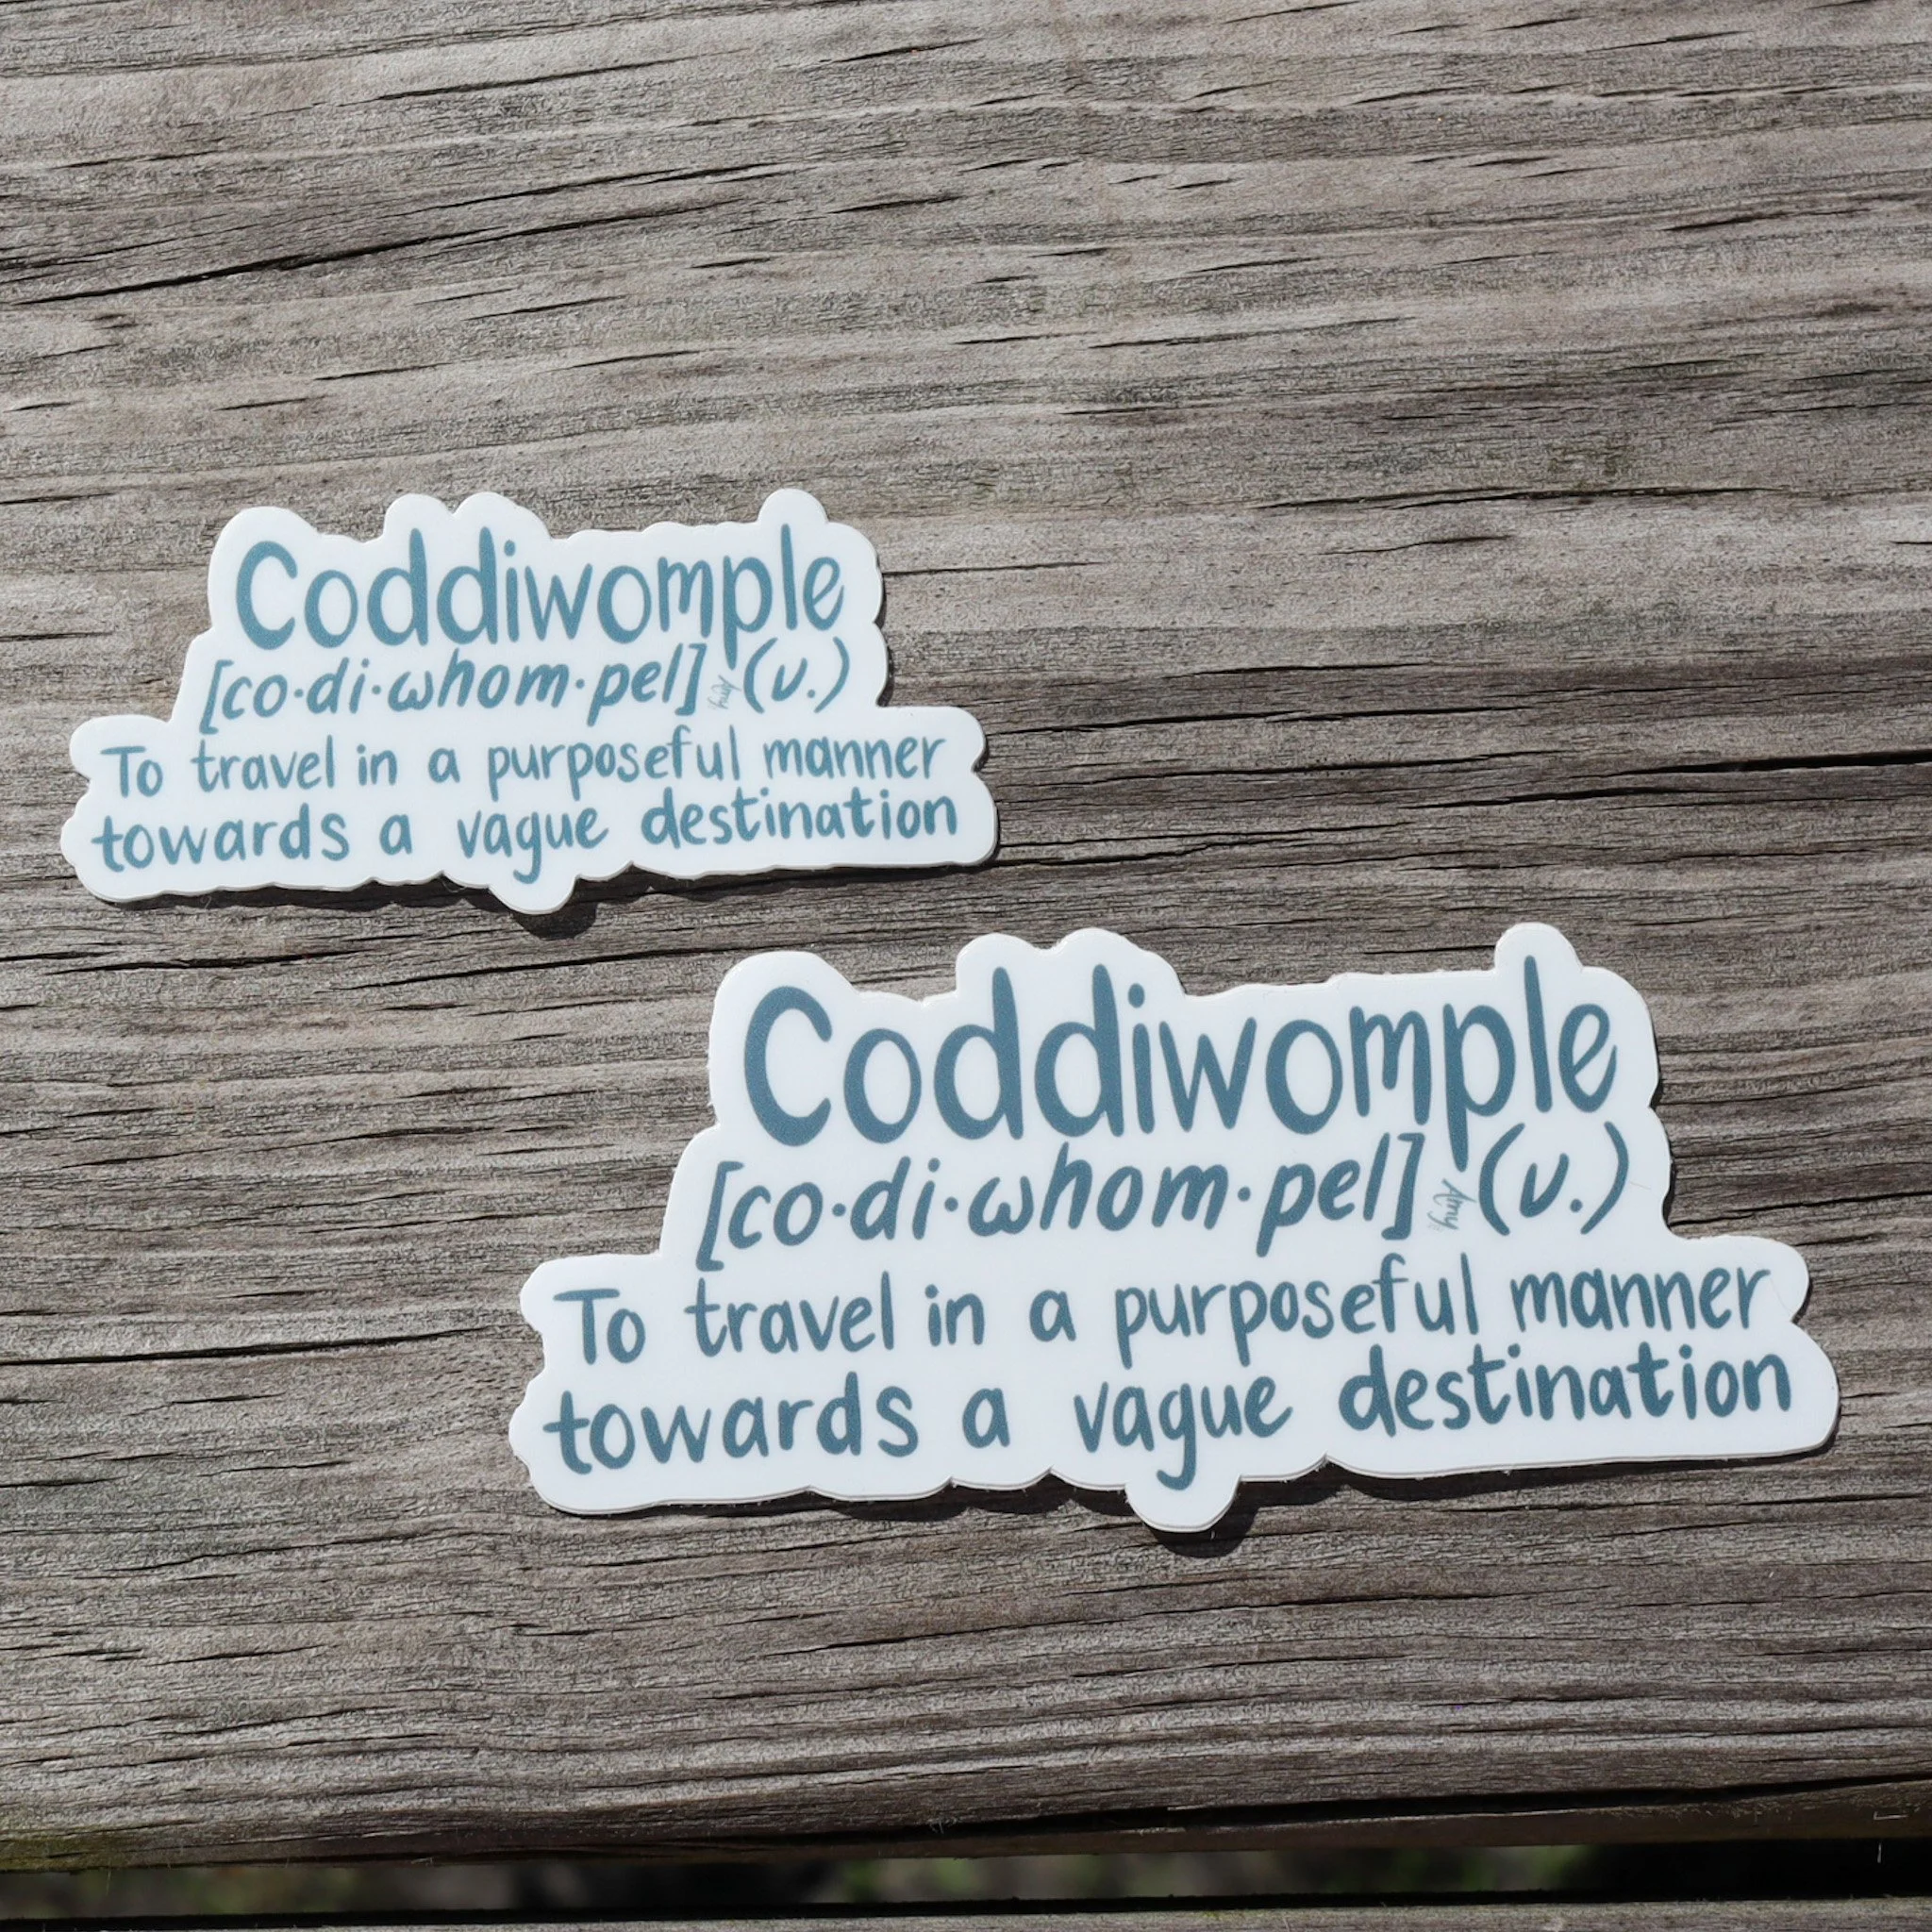 Coddiwomple
[co·di·whom·pel] (v.)
To travel in a purposeful manner
towards a vague destination
Coddiwomple
[co·di·whom·pel] Amy (v.)
To travel in a purposeful manner
towards a vague destination